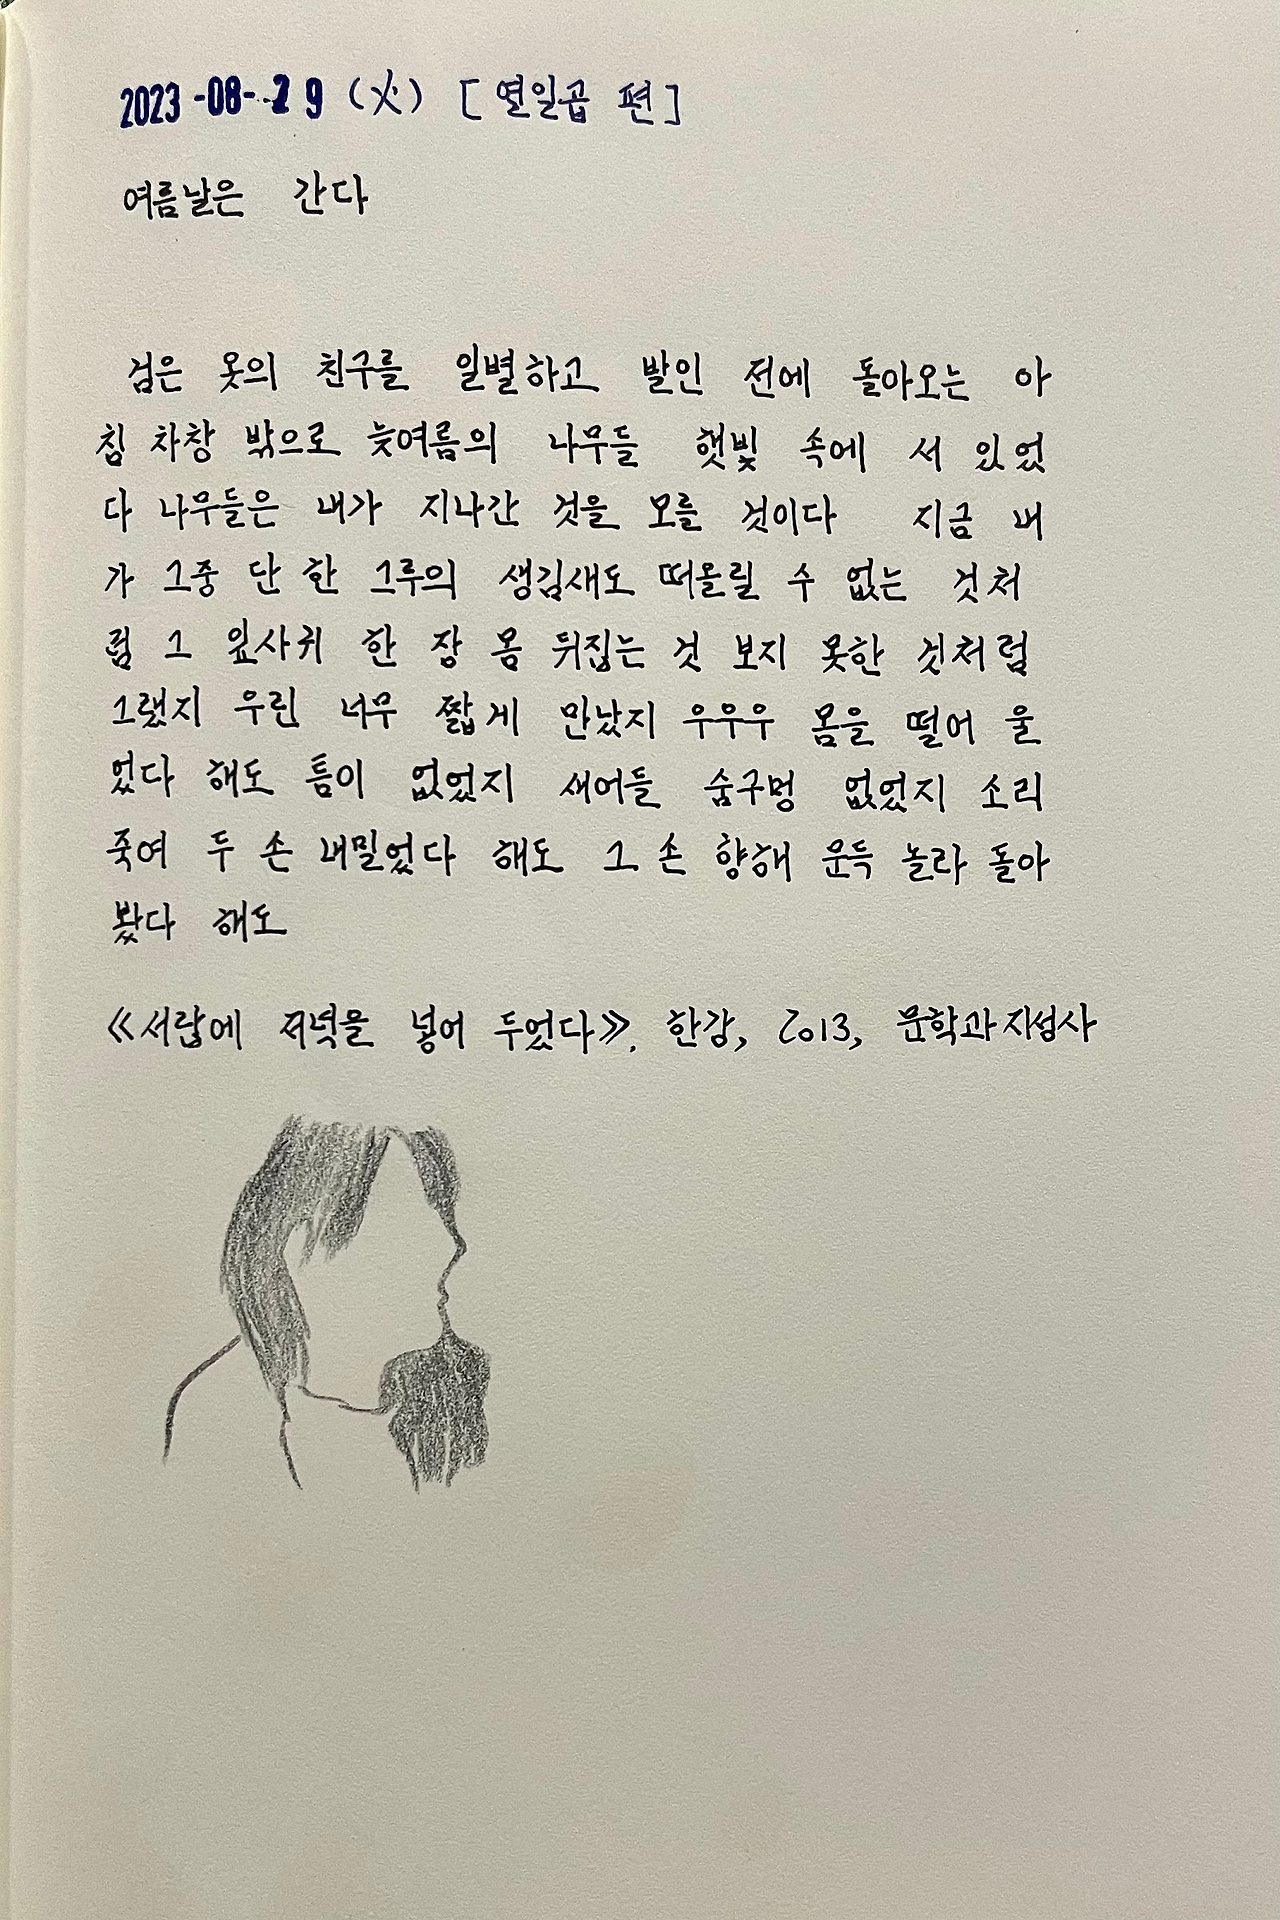 2023-08-29 (火) [열일곱 편]
여름날은 간다
검은 옷의 친구를 일별하고 발인 전에 돌아오는 아
침 차창 밖으로 늦여름의 나무들 햇빛 속에 서 있었
다 나무들은 내가 지나간 것을 모를 것이다 지금 내
가 그중 단 한 그루의 생김새도 떠올릴 수 없는 것처
럼 그 잎사귀 한 장 몸 뒤집는 것 보지 못한 것처럼
그랬지 우린 너무 짧게 만났지 우우우 몸을 떨어 울
었다 해도 틈이 없었지 새어들 숨구멍 없었지 소리
죽여 두 손 내밀었다 해도 그 손 향해 문득 놀라 돌아
봤다 해도
《서랍에 저녁을 넣어 두었다》, 한강, 2013, 문학과지성사